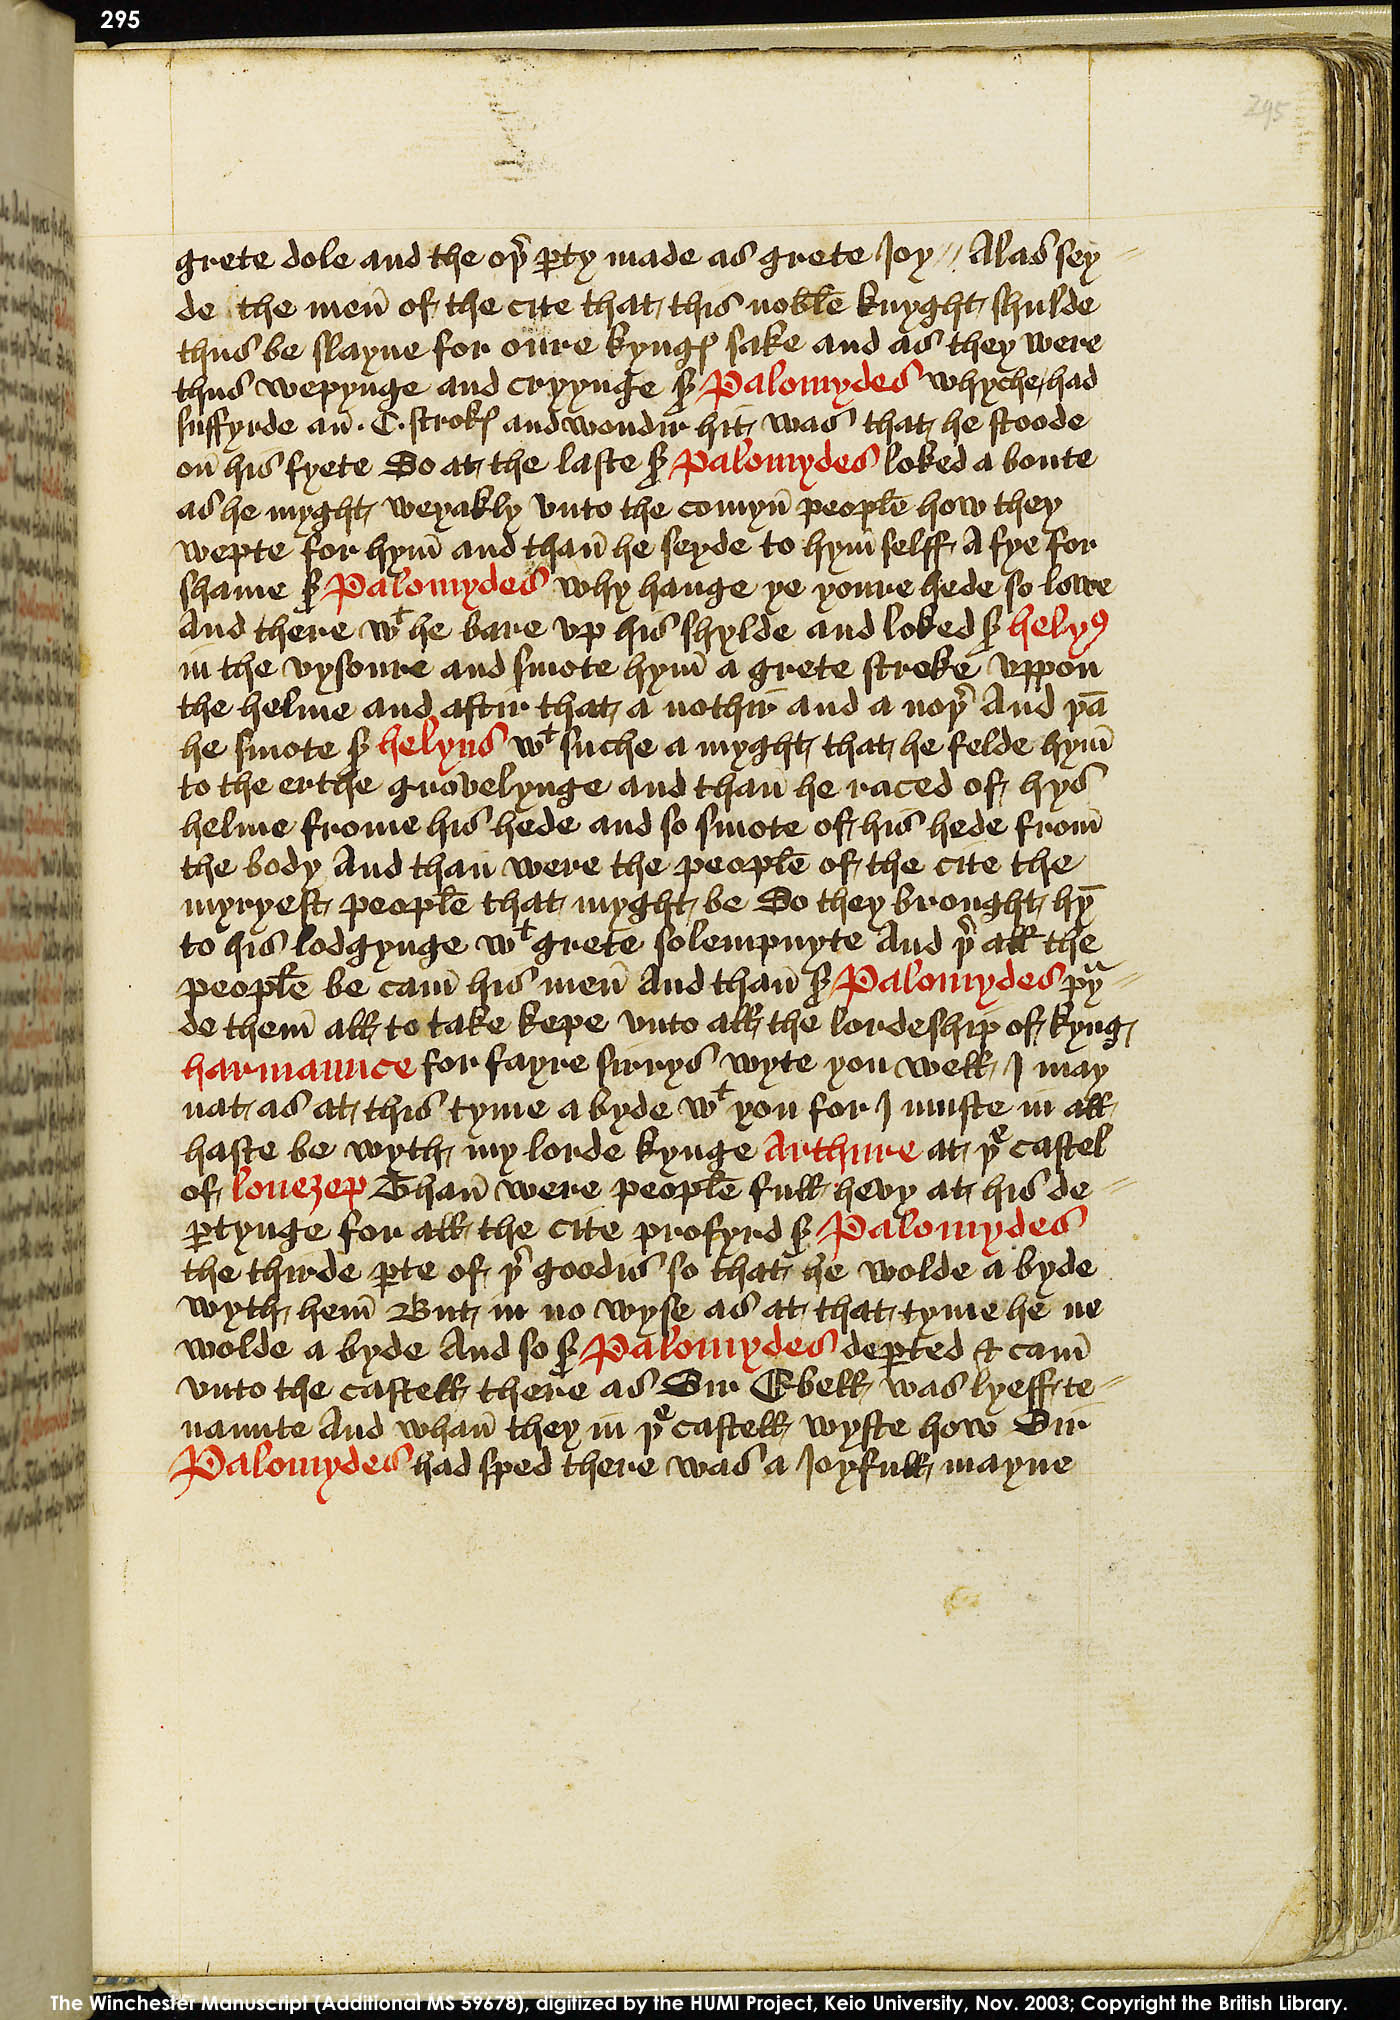 295
295
grete dole and the oþ̉ ꝑty made as grete Joy // Alas sey
de the men̄ of the cite that this noble knyght shulde
thus be slayne for oure kyngꝭ sake and as they were
thus wepynge and cryynge sꝛ̉ Palomydes whyche had
suffyrde an̄ . C . strokꝭ and wondir hit was that he stoode
on̄ his fyete So at the laste sꝛ̉ Palomydes loked a boute
as he myght weyakly vnto the comyn̄ people how they
wepte for hym̄ and than̄ he seyde to hym̄ selff A fye for
shame sꝛ̉ Palomydes why hange ye youre hede so lowe
And there wᵗ he bare vp his shylde and loked sꝛ̉ helyꝰ
in the vysoure and smote hym̄ a grete stroke vppon
the helme and aftir that a nothir and a noþ̉ And þā
he smote sꝛ̉ helyus wᵗ suche a myght that he felde hym̄
to the erthe grovelynge and than̄ he raced of hys
helme frome his hede and so smote of his hede from̄
the body And than̄ were the people of the cite the
myryest people that myght be So they brought hȳ
to his lodgynge wᵗ grete solempnyte And þ̉ all the
people be cam̄ his men̄ And than̄ sꝛ̉ Palomydes pᵃy
de them̄ all to take kepe vnto all the lordeship of kyng
harmaunce for fayre sirrys wyte you well I may
nat as at this tyme a byde wᵗ you for I muste in all
haste be wyth my lorde kynge Arthure at þᵉ castel
of louezep Than̄ were people full hevy at his de
ꝑtynge for all the cite profyrd sꝛ̉ Palomydes
the thirde ꝑte of þ̉ goodis so that he wolde a byde
wyth hem̄ But in no wyse as at that tyme he ne
wolde a byde And so sꝛ̉ Palomydes deꝑted & cam̄
vnto the castell there as Sir Ebell was lyeff te
naunte And whan̄ they in þᵉ castell wyste how Sir
Palomydes had sped there was a Joyfull mayne
The Winchester Manuscript (Additional MS 59678), digitized by the HUMI Project, Keio University, Nov. 2003; Copyright the British Library.